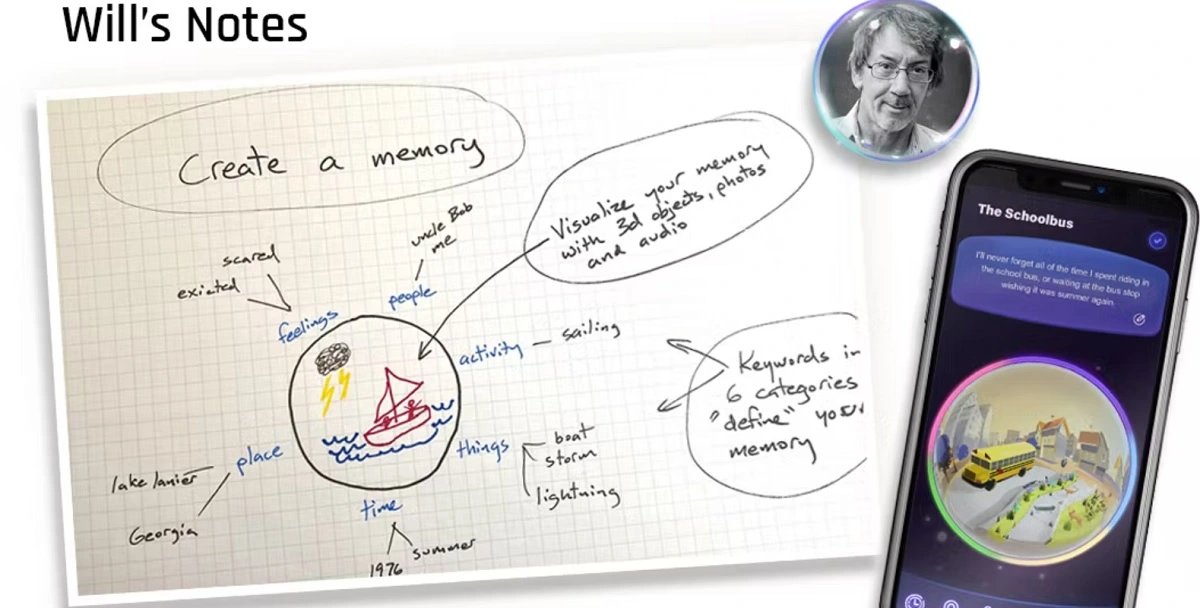 Will's Notes
Create a memory
Visualize your memory
with 3d objects, photos
and audio
uncle Bob
me
people
scared
exicted
feelings
activity – sailing
Keywords in
6 categories
"define" your
memory
things
boat
storm
lightning
place
lake lanier
Georgia
time
1976
summer
The Schoolbus
I'll never forget all of the time I spent riding in
the school bus, or waiting at the bus stop
wishing it was summer again.